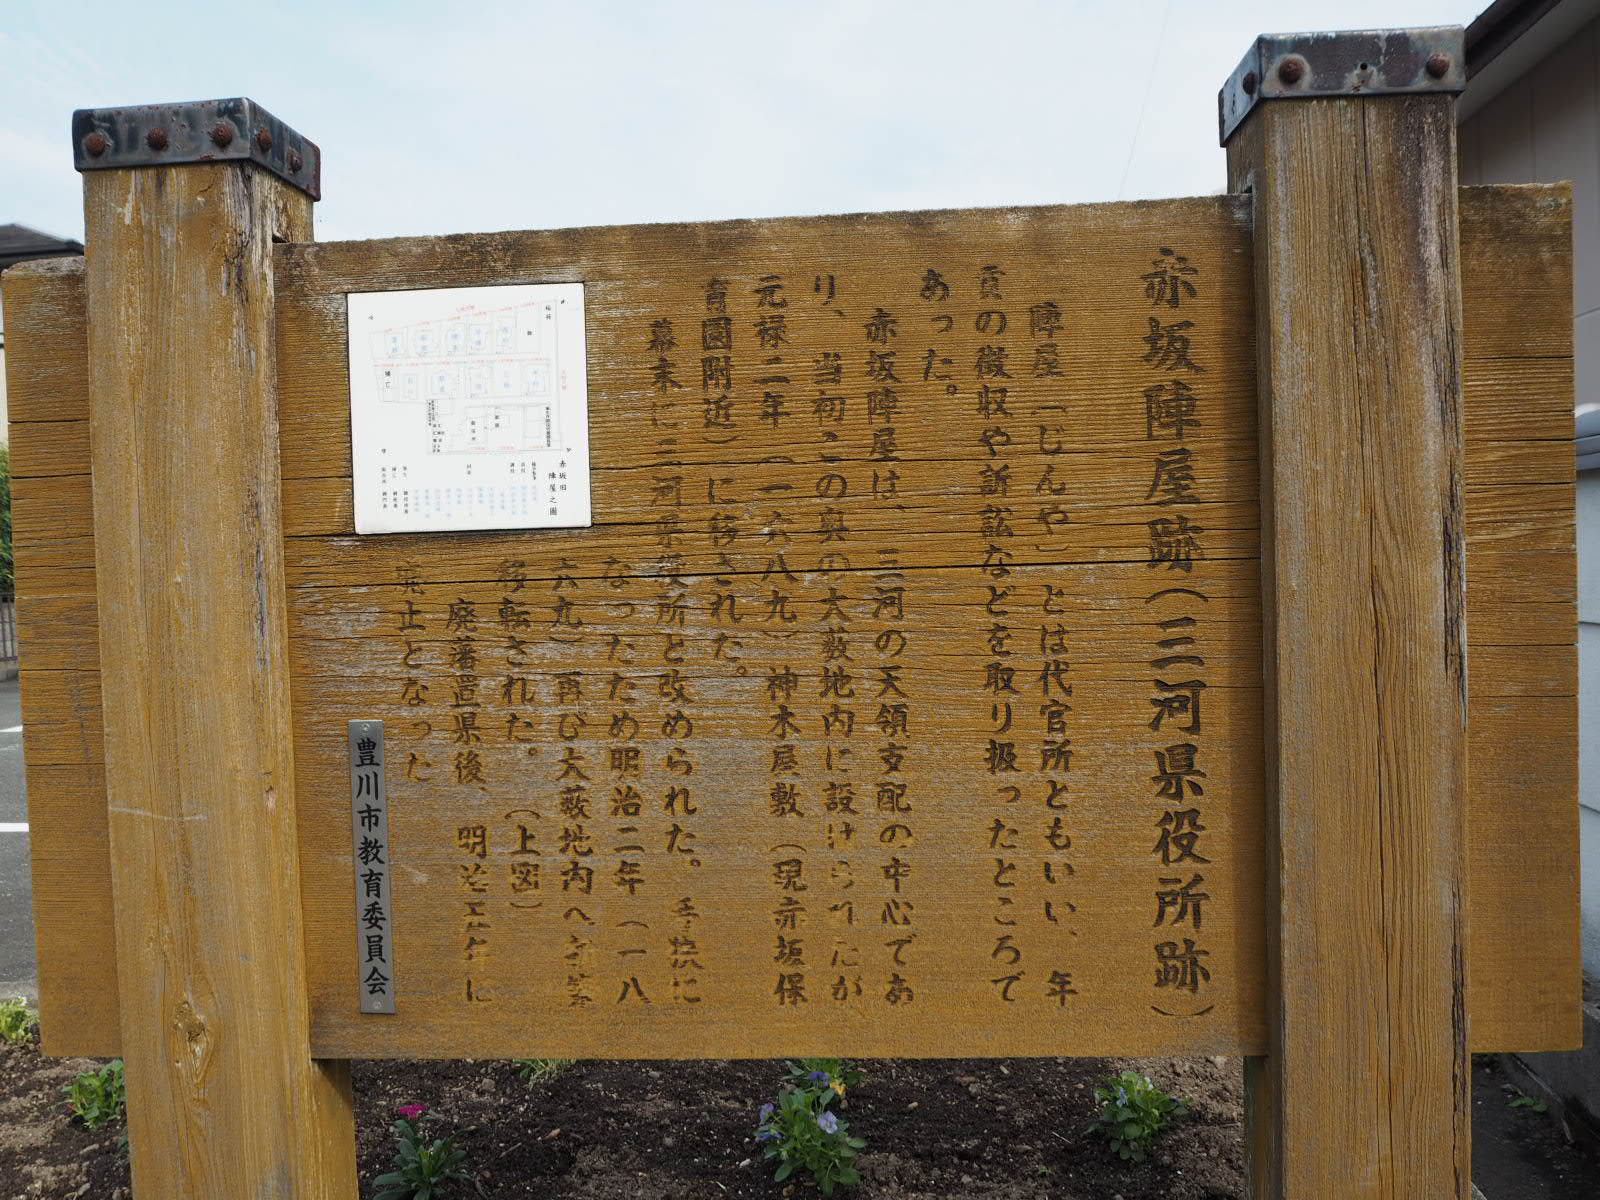 赤坂陣屋跡(三河県役所跡)
陣屋(じんや)とは代官所ともいい、年
貢の徴収や訴訟などを取り扱ったところで
あった。
赤坂陣屋は、三河の天領支配の中心であ
り、当初この奥の大薮地内に設けられたが
元禄二年(一六八九)神木屋敷(現赤坂保
育園附近)に移された。
幕末に三河県役所と改められた。手狭に
なったため明治二年(一八
六九)再び大薮地内へ新築
移転された。(上図)
廃藩置県後、明治五年に
廃止となった
赤坂旧
陣屋之圖
豊川市教育委員会